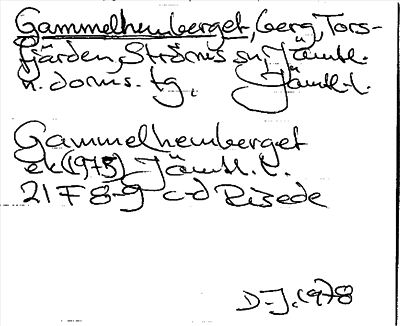 Gammelhemberget, berg, Tors-
fjärden, Ströms sn, Jämtl.
n. doms. tg, Jämtl. l.
Gammelhemberget
ek(1975) Jämtl. l.
21 F 8-9 c-d Risede
D-J. 1978